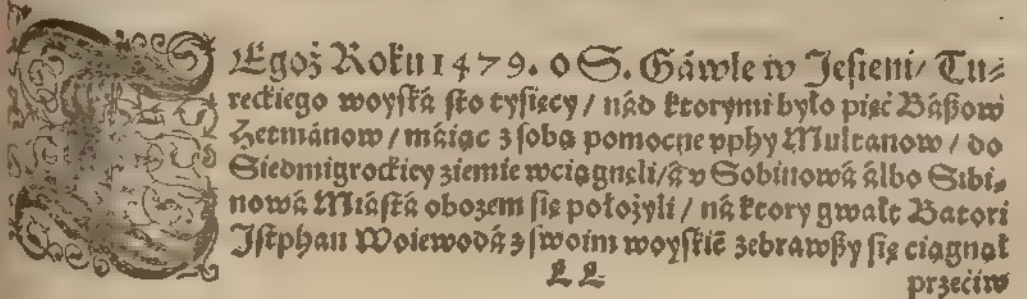 TEgoż Roku 1479. o S. Gáwle w Jeſieni/ Tu⸗
reckiego woyſká ſto tyſięcy / nád ktorymi było pięć Báßow
Hetmánow / máiąc z ſobą pomocne vphy Multanow / do
Siedmigrockiey ziemie wciągnęli/á v Sobinowá álbo Sibi⸗
nowá Miáſtá obozem ſię położyli / ná ktory gwałt Batori
Iſtphan Woiewodá z ſwoim woyſkiẽ zebrawßy ſię ciągnął
LL
przećiw